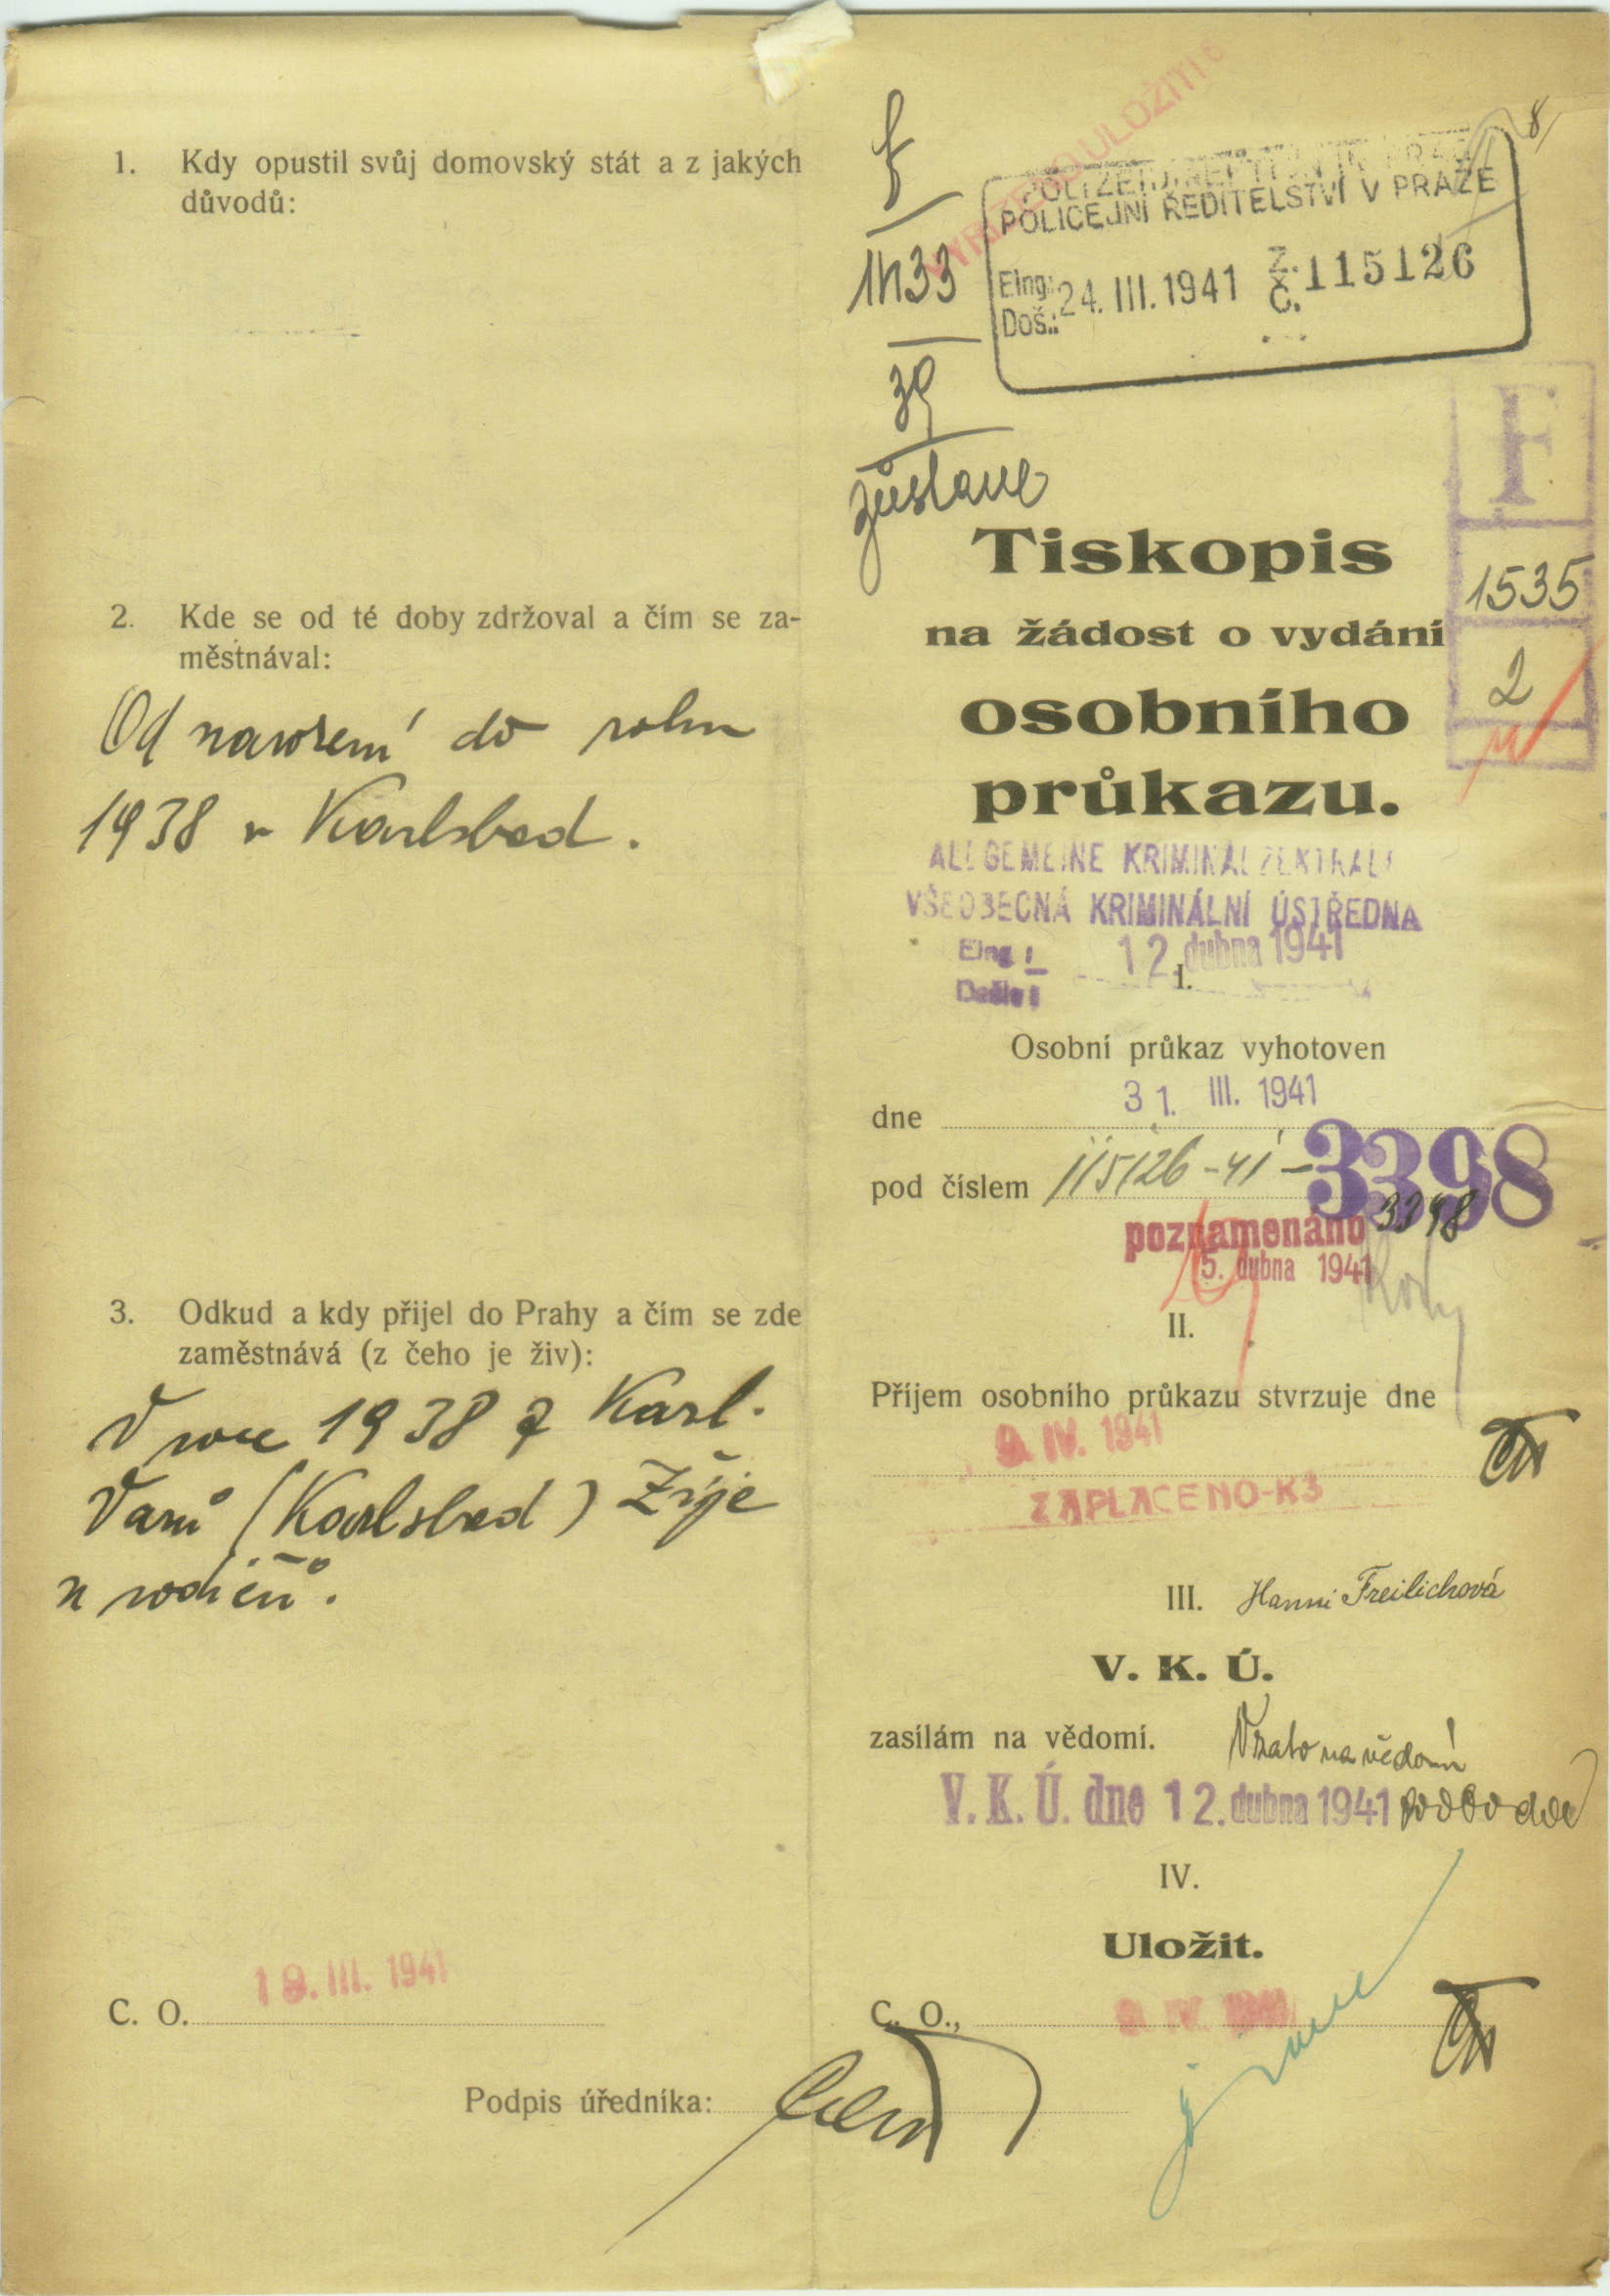 1. Kdy opustil svůj domovský stát a z jakých
důvodů:
2. Kde se od té doby zdržoval a čím se za-
městnával:
Od narození do roku
1938 v Karlsbad.
3. Odkud a kdy přijel do Prahy a čím se zde
zaměstnává (z čeho je živ):
V roce 1938 z Karl.
Varů (Karlsbad) Žije
u rodičů.
C. O. 18. III. 1941
Podpis úředníka:
8/
POLIZEIDIREKTION IN PRAG
POLICEJNÍ ŘEDITELSTVÍ V PRAZE
Eing.: 24. III. 1941 Z. 115126
Doš.: Č.
39
zůstane
F
1535
2
Tiskopis
na žádost o vydání
osobního
průkazu.
ALLGEMEINE KRIMINALZENTRALE
VŠEOBECNÁ KRIMINÁLNÍ ÚSTŘEDNA
Eing: 12. dubna 1941
Došlo:
I.
Osobní průkaz vyhotoven
dne 31. III. 1941
pod číslem 115126-41-3398
3398
poznamenáno
5. dubna 1941
II.
Příjem osobního průkazu stvrzuje dne
9. IV. 1941
ZAPLACENO-K3
III. Hanni Freilichová
V. K. Ú.
zasílám na vědomí. Vzato na vědomí
V. K. Ú. dne 12. dubna 1941
IV.
Uložit.
C. O., 9. IV. 1941